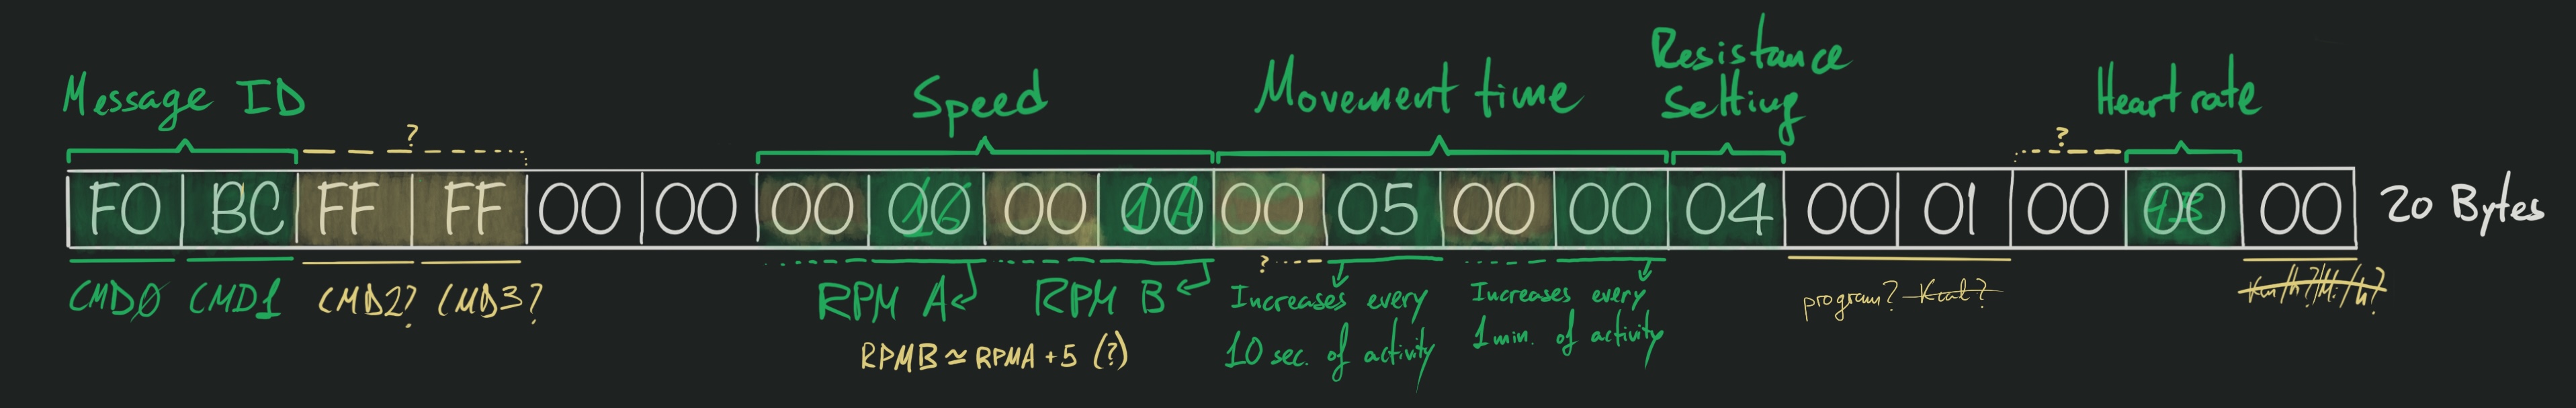 Message ID
?
Speed
Movement time
Resistance
Setting
?
Heart rate
F0 BC FF FF 00 00 00 00 00 00 00 05 00 00 04 00 01 00 00 00 20 Bytes
16 1A
CMD0 CMD1 CMD2? CMD3?
RPM A RPM B
RPMB ≃ RPMA + 5 (?)
?
Increases every
10 sec. of activity
Increases every
1 min. of activity
program? Kcal?
Km/h?/Mi/h?